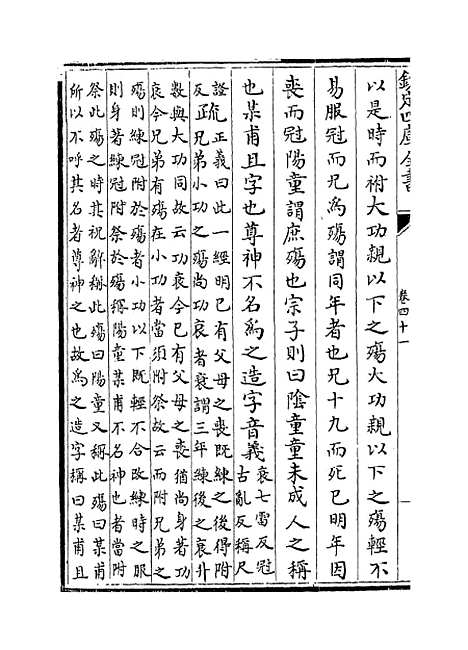 欽定四庫全書
卷四十一
以是時而祔大功親以下之殤大功親以下之殤輕不
易服冠而兄為殤謂同年者也兄十九而死已明年因
喪而冠陽童謂庶殤也宗子則曰陰童童未成人之稱
也某甫且字也尊神不名為之造字音義
衰七雷反冠
古亂反稱尺
證
反
疏正義曰此一經明已有父母之喪既練之後得附
兄弟小功之殤尚功衰者衰謂三年練後之衰升
數與大功同故云功衰今已有父母之喪猶尚身著功
衰今兄弟有殤在小功者當須附祭故云而附兄弟之
殤則練冠附於殤者小功以下既輕不合改練時之服
則身著練冠附祭於殤稱陽童某甫不名神也者當附
祭此殤之時其祝辭稱此殤曰陽童又稱此殤曰某甫
所以不呼其名者尊神之也故為之造字稱曰某甫且